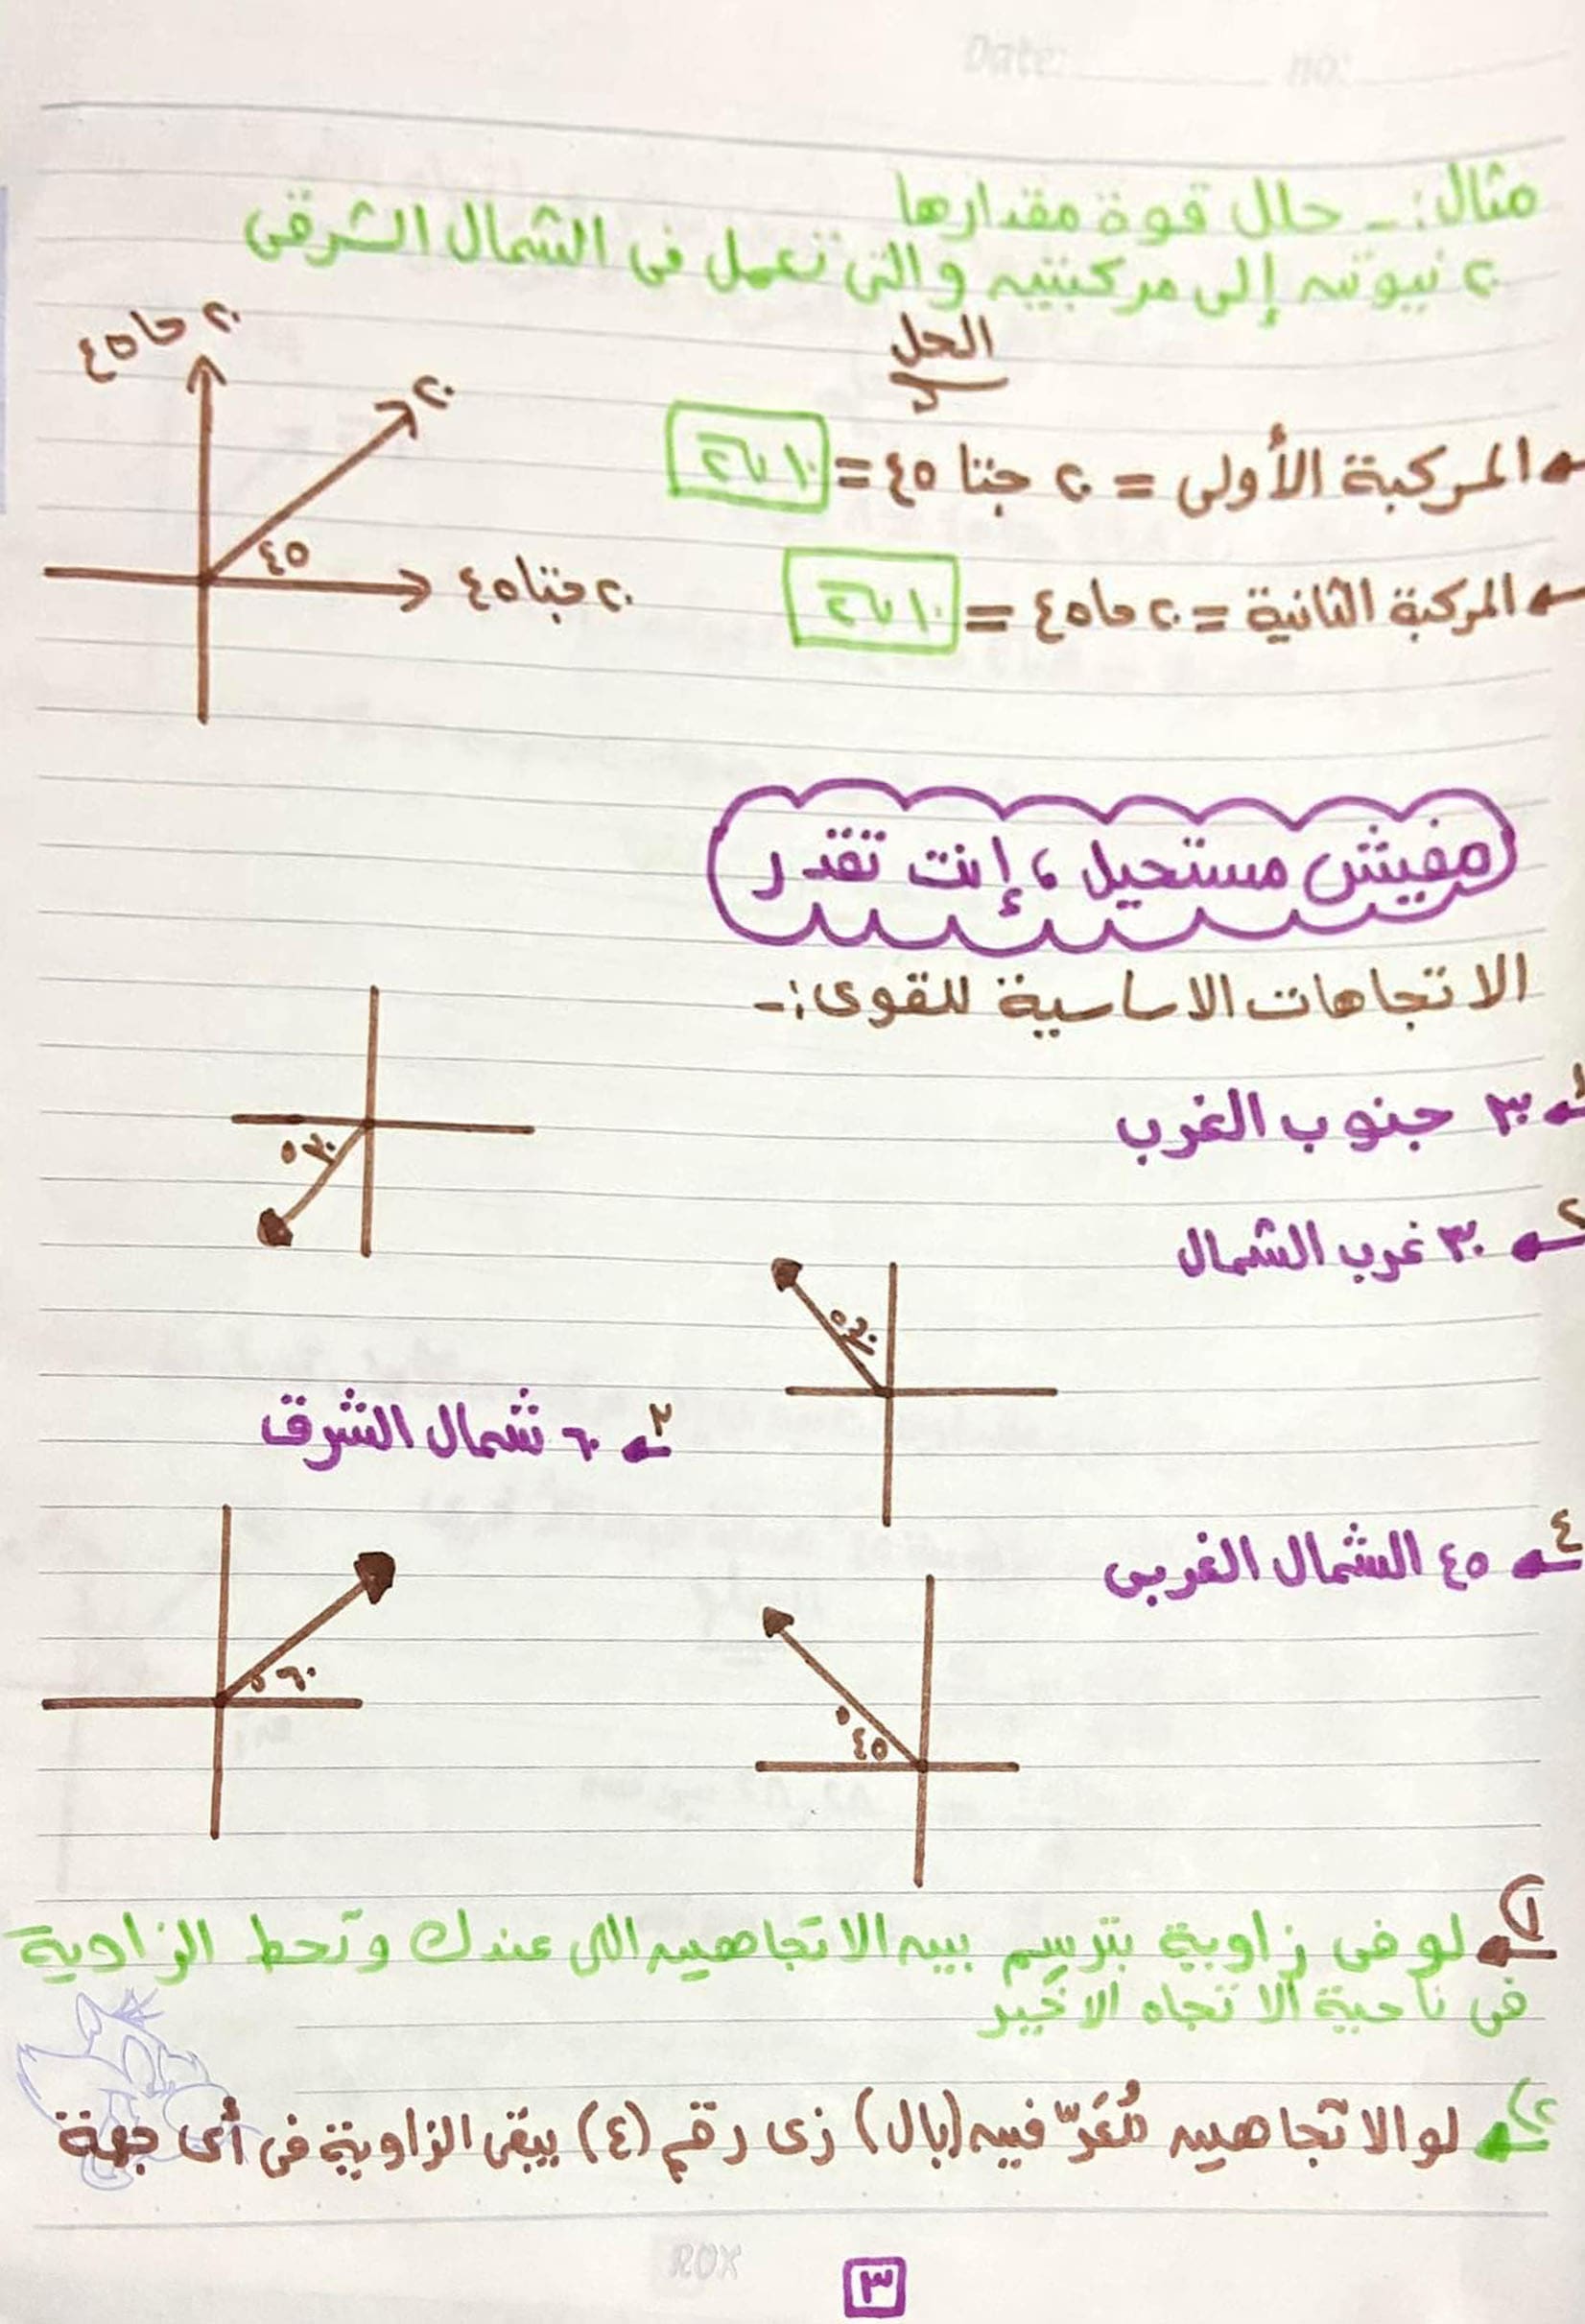 Date: no:
مثال:- حلل قوة مقدارها
٢٠ نيوتن إلى مركبتين والتى تعمل فى الشمال الشرقى
الحل
المركبة الأولى = ٢٠ جتا ٤٥ = ١٠√٢
المركبة الثانية = ٢٠ حا ٤٥ = ١٠√٢
٢٠ حا ٤٥
٢٠
٤٥
٢٠ جتا ٤٥
مفيش مستحيل، إنت تقدر
الاتجاهات الاساسية للقوى:-
١ ٣٠ جنوب الغرب
٣٠°
٢ ٣٠ غرب الشمال
٣٠°
٣ ٦٠ شمال الشرق
٦٠°
٤ ٤٥ الشمال الغربى
٤٥°
١ لو فى زاوية بترسم بين الاتجاهين اللى عندك وتحط الزاوية
فى ناحية الاتجاه الاخير
٢ لو الاتجاهين مُعَرّفين (بال) زى رقم (٤) يبقى الزاوية فى أى جهة
ROX
٣